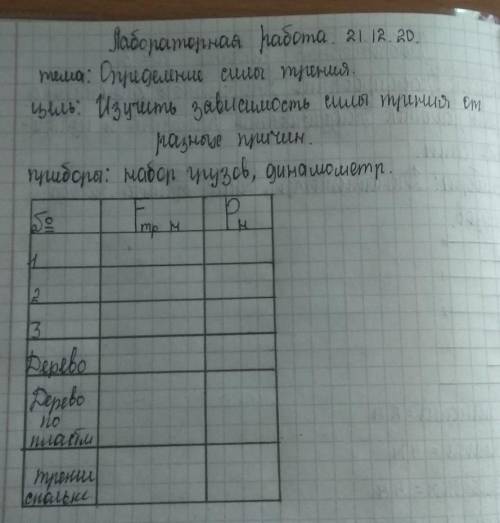 Лабораторная работа. 21.12.20.
тема: Определние силы трения.
цель: Изучить зависимость силы трения от
разные причин.
приборы: набор грузов, динамометр.
№ Fтр н Pн
1
2
3
Дерево
Дерево
по
пластм